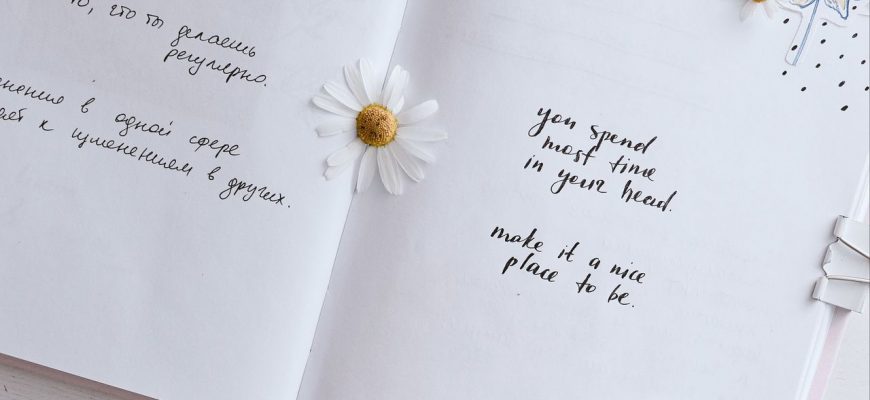 что ты делаешь
регулярно.
в одной сфере
к изменениям в других.
you spend
most time
in your head.
make it a nice
place to be.